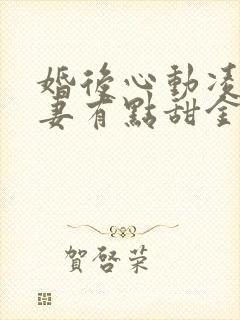 婚後心動凌
妻有點甜全
賀啓榮